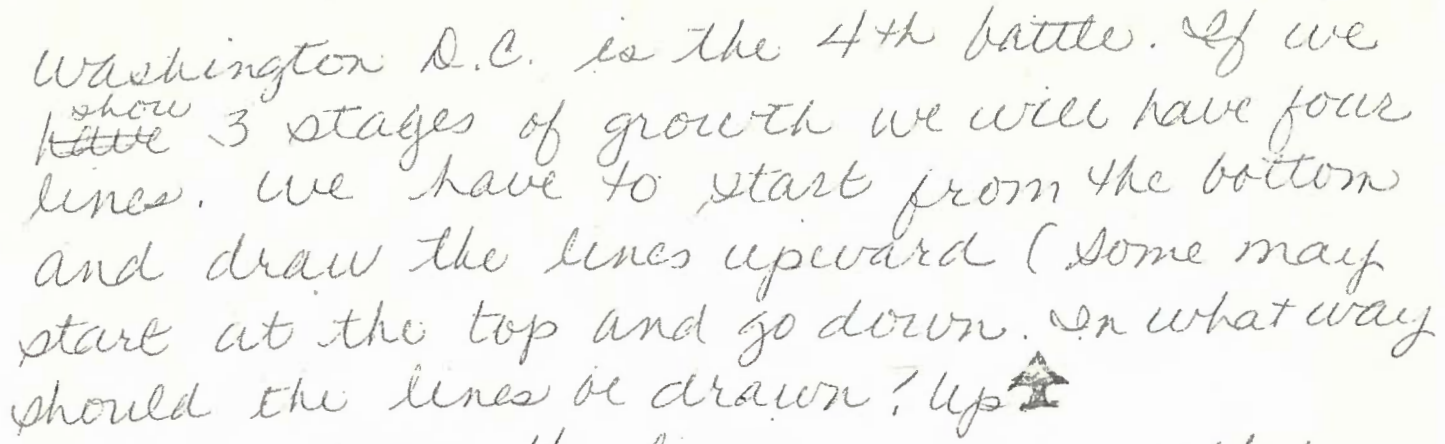 Washington D.C. is the 4th battle. If we
show
have 3 stages of growth we will have four
lines. We have to start from the bottom
and draw the lines upward (some may
start at the top and go down. In what way
should the lines be drawn? Up